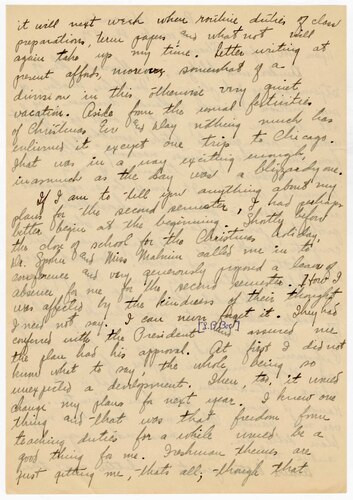 it will next week when routine duties of class
preparations, term papers and what not will
again take up my time. Letter writing at
present affords, moreover, somewhat of a
diversion in this otherwise very quiet
vacation. Aside from the usual festivities
of Christmas Eve and day nothing much has
enlivened it except one trip to Chicago.
That was in a way exciting enough,
inasmuch as the day was a blizzardy one.
If I am to tell you anything about my
plans for the second semester, I had perhaps
better begin at the beginning. Shortly before
the close of school for the Christmas holiday,
Dr. and Miss called me in to
conference and very generously proposed a leave of
absence for me for the second semester. How I
was affected by the kindness of their thought
I need not say. I can never forget it. They had
conferred with the President who assured me
the plan had his approval. At first I did not
know what to say, the whole being so
unexpected a development. Then, too, it would
change my plans for next year. I knew one
thing and that was that freedom from
teaching duties for a while would be a
good thing for me. Freshman themes are
just getting me, that's all; though that